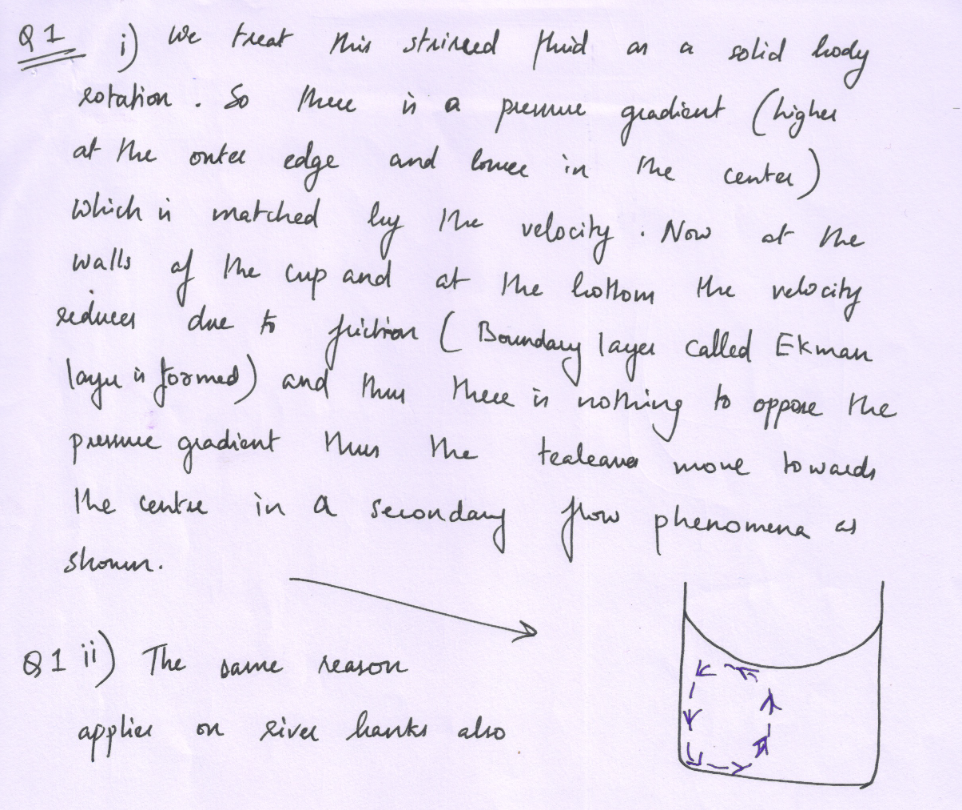 Q1 i) We treat this stirred fluid as a solid body
rotation. So there is a pressure gradient (higher
at the outer edge and lower in the center)
which is matched by the velocity. Now at the
walls of the cup and at the bottom the velocity
reduces due to friction (Boundary layer called Ekman
layer is formed) and thus there is nothing to oppose the
pressure gradient thus the tealeaves move towards
the centre in a secondary flow phenomena as
shown.
Q1 ii) The same reason
applies on river banks also